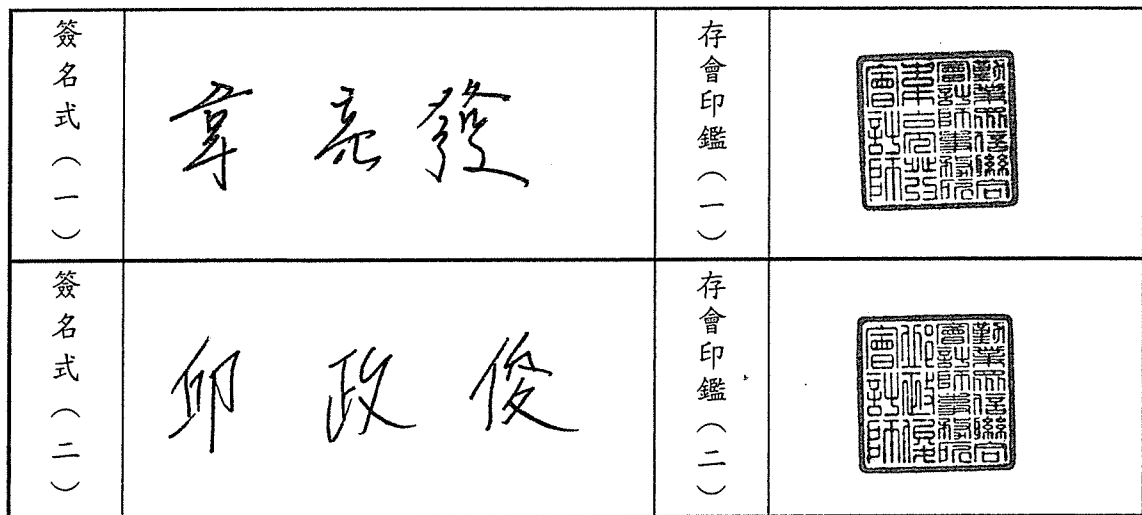 簽名式（一）
韋亮發
存會印鑑（一）
勤業眾信聯合
會計師事務所
韋亮發
會計師
簽名式（二）
邱政俊
存會印鑑（二）
勤業眾信聯合
會計師事務所
邱政俊
會計師